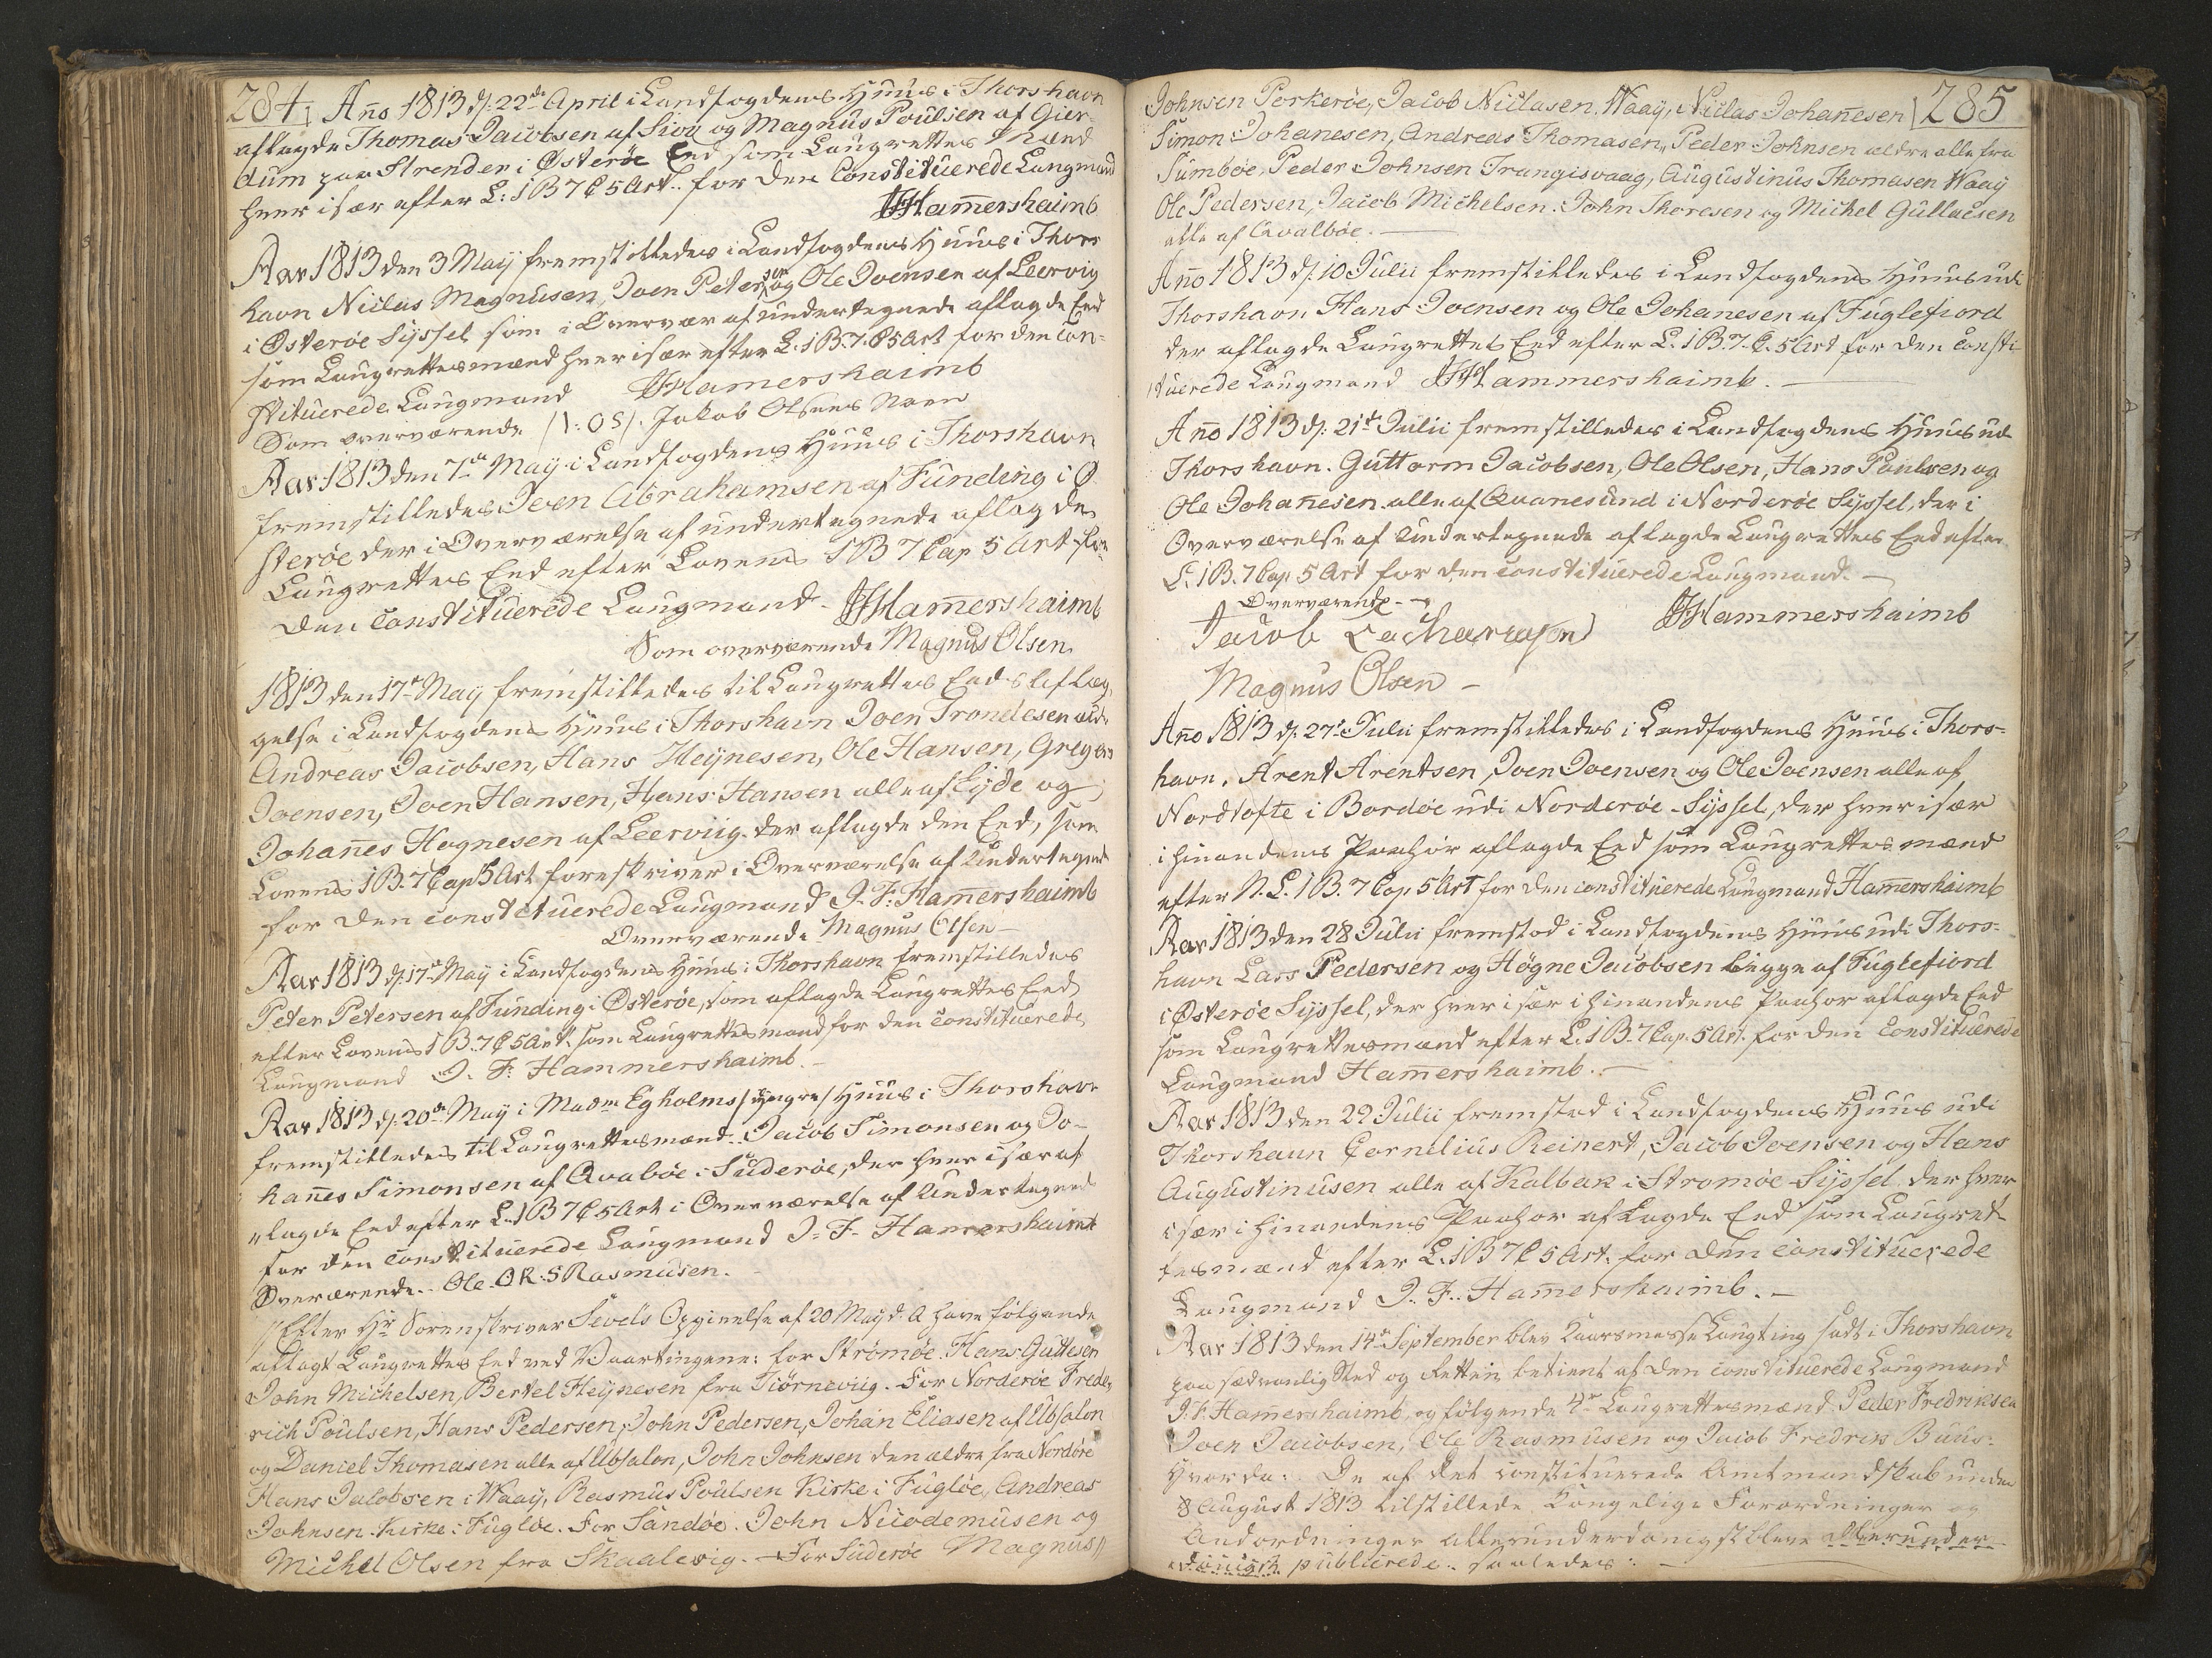 284 Año 1813 d: 22de April i Landfogdens Huus i Thorshavn
aflagde Thomas Jacobsen af Siov og Magnus Poulsen af Gier-
dum paa Strender i Østerøe Eed som Laugrettes Mænd
hver især efter L: 1 B 7 C 5 Art.. for den Constituerede Laugmand
JFHam̄ershaimb
Aar 1813 den 3 Maÿ fremstilledes i Landfogdens Huus i Thors
havn Niclas Magnusen, Joen Petersen og Ole Joensen af Leervig
i Østerøe Sÿssel som i Overvær af undertegnede aflagde Eed
som Laugrettesmænd hver især efter L. 1 B. 7. C 5 Art for den Con=
stituerede Laugmand JFHamershaimb
Som overværende /: OS/. Jakob Olsens Navn
Aar 1813 den 7de Maÿ i Landfogdens Huus i Thorshavn
fremstilledes Joen Abrahamsen af Funding i Ø
sterøe der i Overværelse af undertegnede aflagde
Laugrettes Eed efter Lovens 1 B 7 Cap 5 Art for
den Constituerede Laugmand. JFHam̄ershaimb
Som overværende Magnus Olsen.
1813 den 17de Maÿ fremstilledes til Laugrettes Eeds aflæg,
gelse i Landfogdens Huus i Thorshavn Joen Trondesen æld:
Andreas Jacobsen, Hans Heÿnesen, Ole Hansen, Gregers
Joensen, Joen Hansen, Hans Hansen alle af Eÿde og
Johan̄es Hognesen af Leerviig. der aflagde den Eed, som
Lovens 1 B. 7 Cap 5 Art foreskriver i Overværelse af Undertegnede
for den constituerede Laugmand J. F. Ham̄ershaimb
Overværende Magnus Olsen
Aar 1813 d: 17de Maÿ i Landfogdens Huus i Thorshavn fremstilledes
Peter Petersen af Funding i Østerøe, som aflagde Laugrettes Eed
efter Lovens 1 B. 7 C 5 Art. som Laugrettesmand for den Constituerede
Laugmand J. F. Hammershaimb.
Aar 1813 d: 20de Maÿ i Madm Egholms /yngre/ Huus i Thorshavn
fremstilledes til Laugrettesmænd.. Jacob Simonsen og Jo-
han̄es Simonsen af Qvalbøe i Suderøe, der hver især af
"lagde Eed efter L. 1 B 7 C 5 Art i Overværelse af Undertegnede
for den Constituerede Laugmand J. F. Hamershaimb
Overværende.. Ole O R. S Rasmusen.
Efter Hr Sorenskriver Sevels Opgivelse af 20 Maÿ d: A have følgende
aflagt Laugrettes Eed ved Vaartingene: for Strømøe. Hans Guttesen
John Michelsen, Bertel Heÿnesen fra Tiørneviig. For Norderøe Frede,
rich Poulsen, Hans Pedersen, John Pedersen, Johan Eliasen af Ubsalon
og Daniel Thomasen alle af Ubsalon, John Johnsen den ældre fra Nordøre
Hans Jacobsen i Waaÿ, Rasmus Poulsen Kirke i Fugløe, Andreas
Johnsen Kirke i Fugløe. For Sandøe. John Nicodemusen og
Michel Olsen fra Skaalevig. — For Suderøe Magnus
285
Johnsen Porkerøe, Jacob Niclasen. Waaÿ, Niclas Johan̄esen
Simon Johanesen, Andreas Thomasen, Peder Johnsen ældre alle fra
Sumbøe, Peder Johnsen Trangisvaag, Augustinus Thomasen Waaÿ
Ole Pedersen, Jacob Michelsen. John Thoresen og Michel Gullacsen
alle af Qvalbøe.
Año 1813 d: 10 Julii fremstilledes i Landfogdens Huus udi
Thorshavn Hans Joensen og Ole Johanesen af Fuglefiord
der aflagde Laugrettes Eed efter L. 1 B. 7. C. 5 Art for den Consti-
tuerede Laugmand JFHammershaimb.
Año 1813 d: 21de Julii fremstilledes i Landfogdens Huus ud
Thorshavn. Guttorm Jacobsen, Ole Olsen, Hans Poulsen og
Ole Johan̄esen alle af Qvanesund i Norderøe Sÿssel, der i
Overværelse af Undertegnede aflagde Laugrettes Eed efter
L. 1 B. 7 Cap 5 Art for den constituerede Laugmand.
Overværende
Jacob Zachariasen JFHammershaimb
Magnus Olsen
Año 1813 d: 27de Julii fremstilledes i Landfogdens Huus i Thors=
havn. Arent Arentsen Joen Joensen og Ole Joensen alle af
Nordtofte i Bordøe udi Norderøe-Sÿssel, der hver især
i hinandens Paahør aflagde Eed som Laugrettesmænd
efter N. L. 1 B. 7 Cap. 5 Art for den constituerede Laugmand Ham̄ershaimb
Aar 1813 den 28 Julii fremstod i Landfogdens Huus udi Thors=
havn Lars Pedersen og Høgne Jacobsen begge af Fuglefiord
i Østerøe Sÿssel, der hver især i hinandens Paahør aflagde Eed
som Laugrettesmænd efter L. 1 B. 7 Cap. 5 Art. for den Constituerede
Laugmand Ham̄ershaimb.
Aar 1813 den 29 Julii fremstod i Landfogdens Huus udi
Thorshaun Cornelius Reinert, Jacob Joensen og Hans
Augustinusen alle af Kalbak i Strømøe Sÿssel. der hver
især i hinandens Paahør aflagde Eed som Laugret-
tesmænd efter L. 1 B 7 C 5 Art. for den Constituerede
Laugmand J. F. Ham̄ershaimb.
Aar 1813 den 14de September blev Kaarsmesse Laugting sadt i Thorshavn
paa sædvanlig Sted og Retten betient af den Constituerede Laugmand
J. F. Ham̄ershaimb, og følgende 4re Laugrettesmænd. Peder Fredriksen
Joen Jacobsen, Ole Rasmusen og Jacob Fredrik Buus.
Hvorda: De af det constituerede Amtmandskab under
8 August 1813 tilstillede Kongelige Forordninger og
Andordninger allerunderdanigst bleve allerunder-
danigst publicerede.. saaledes: